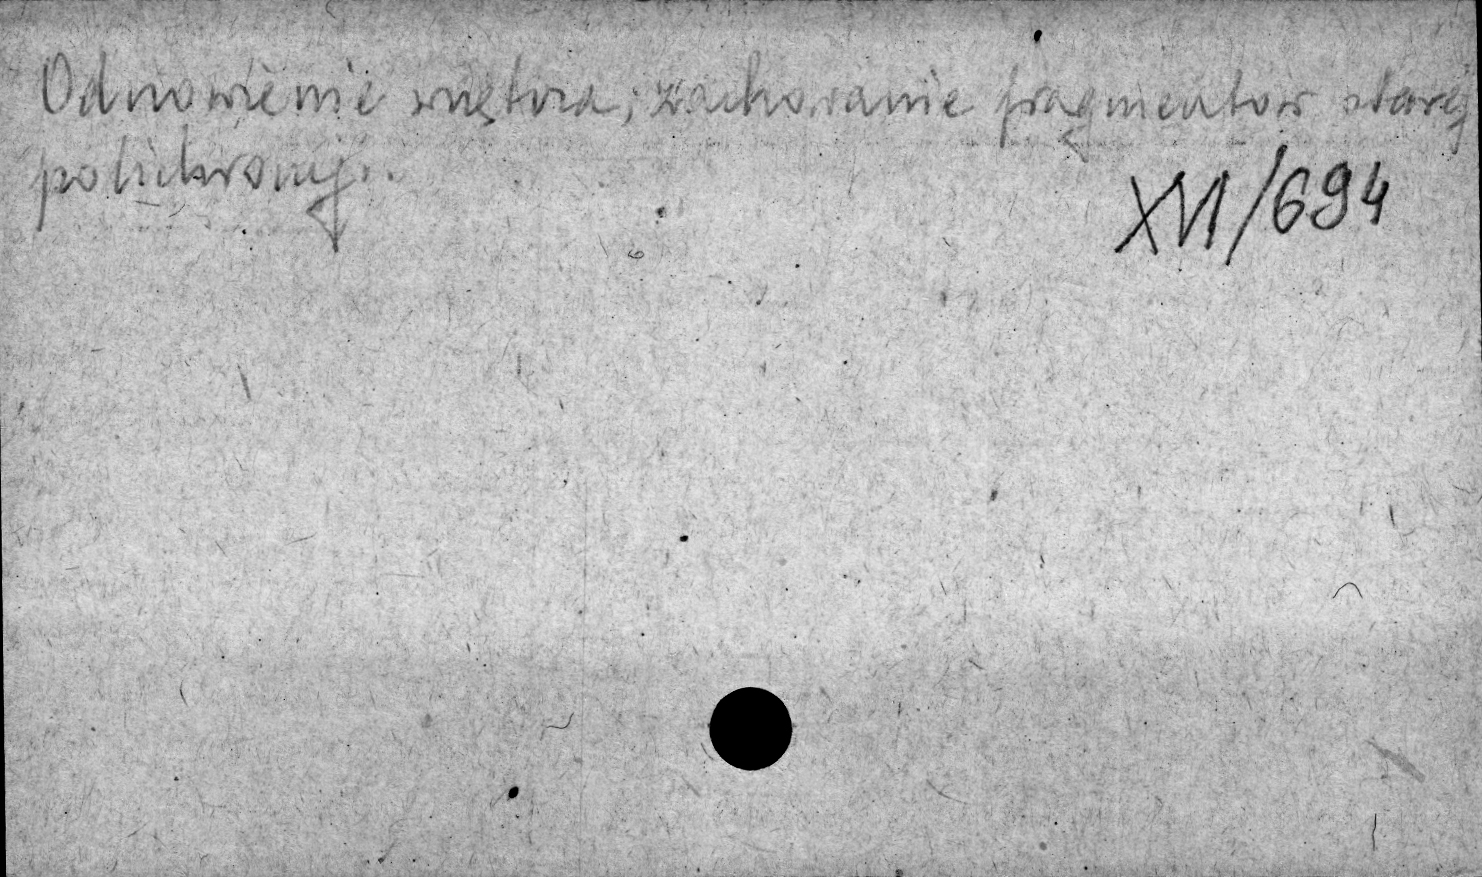 Odnowienie wnętrza; zachowanie fragmentów starej
polichromji.
XVI/694